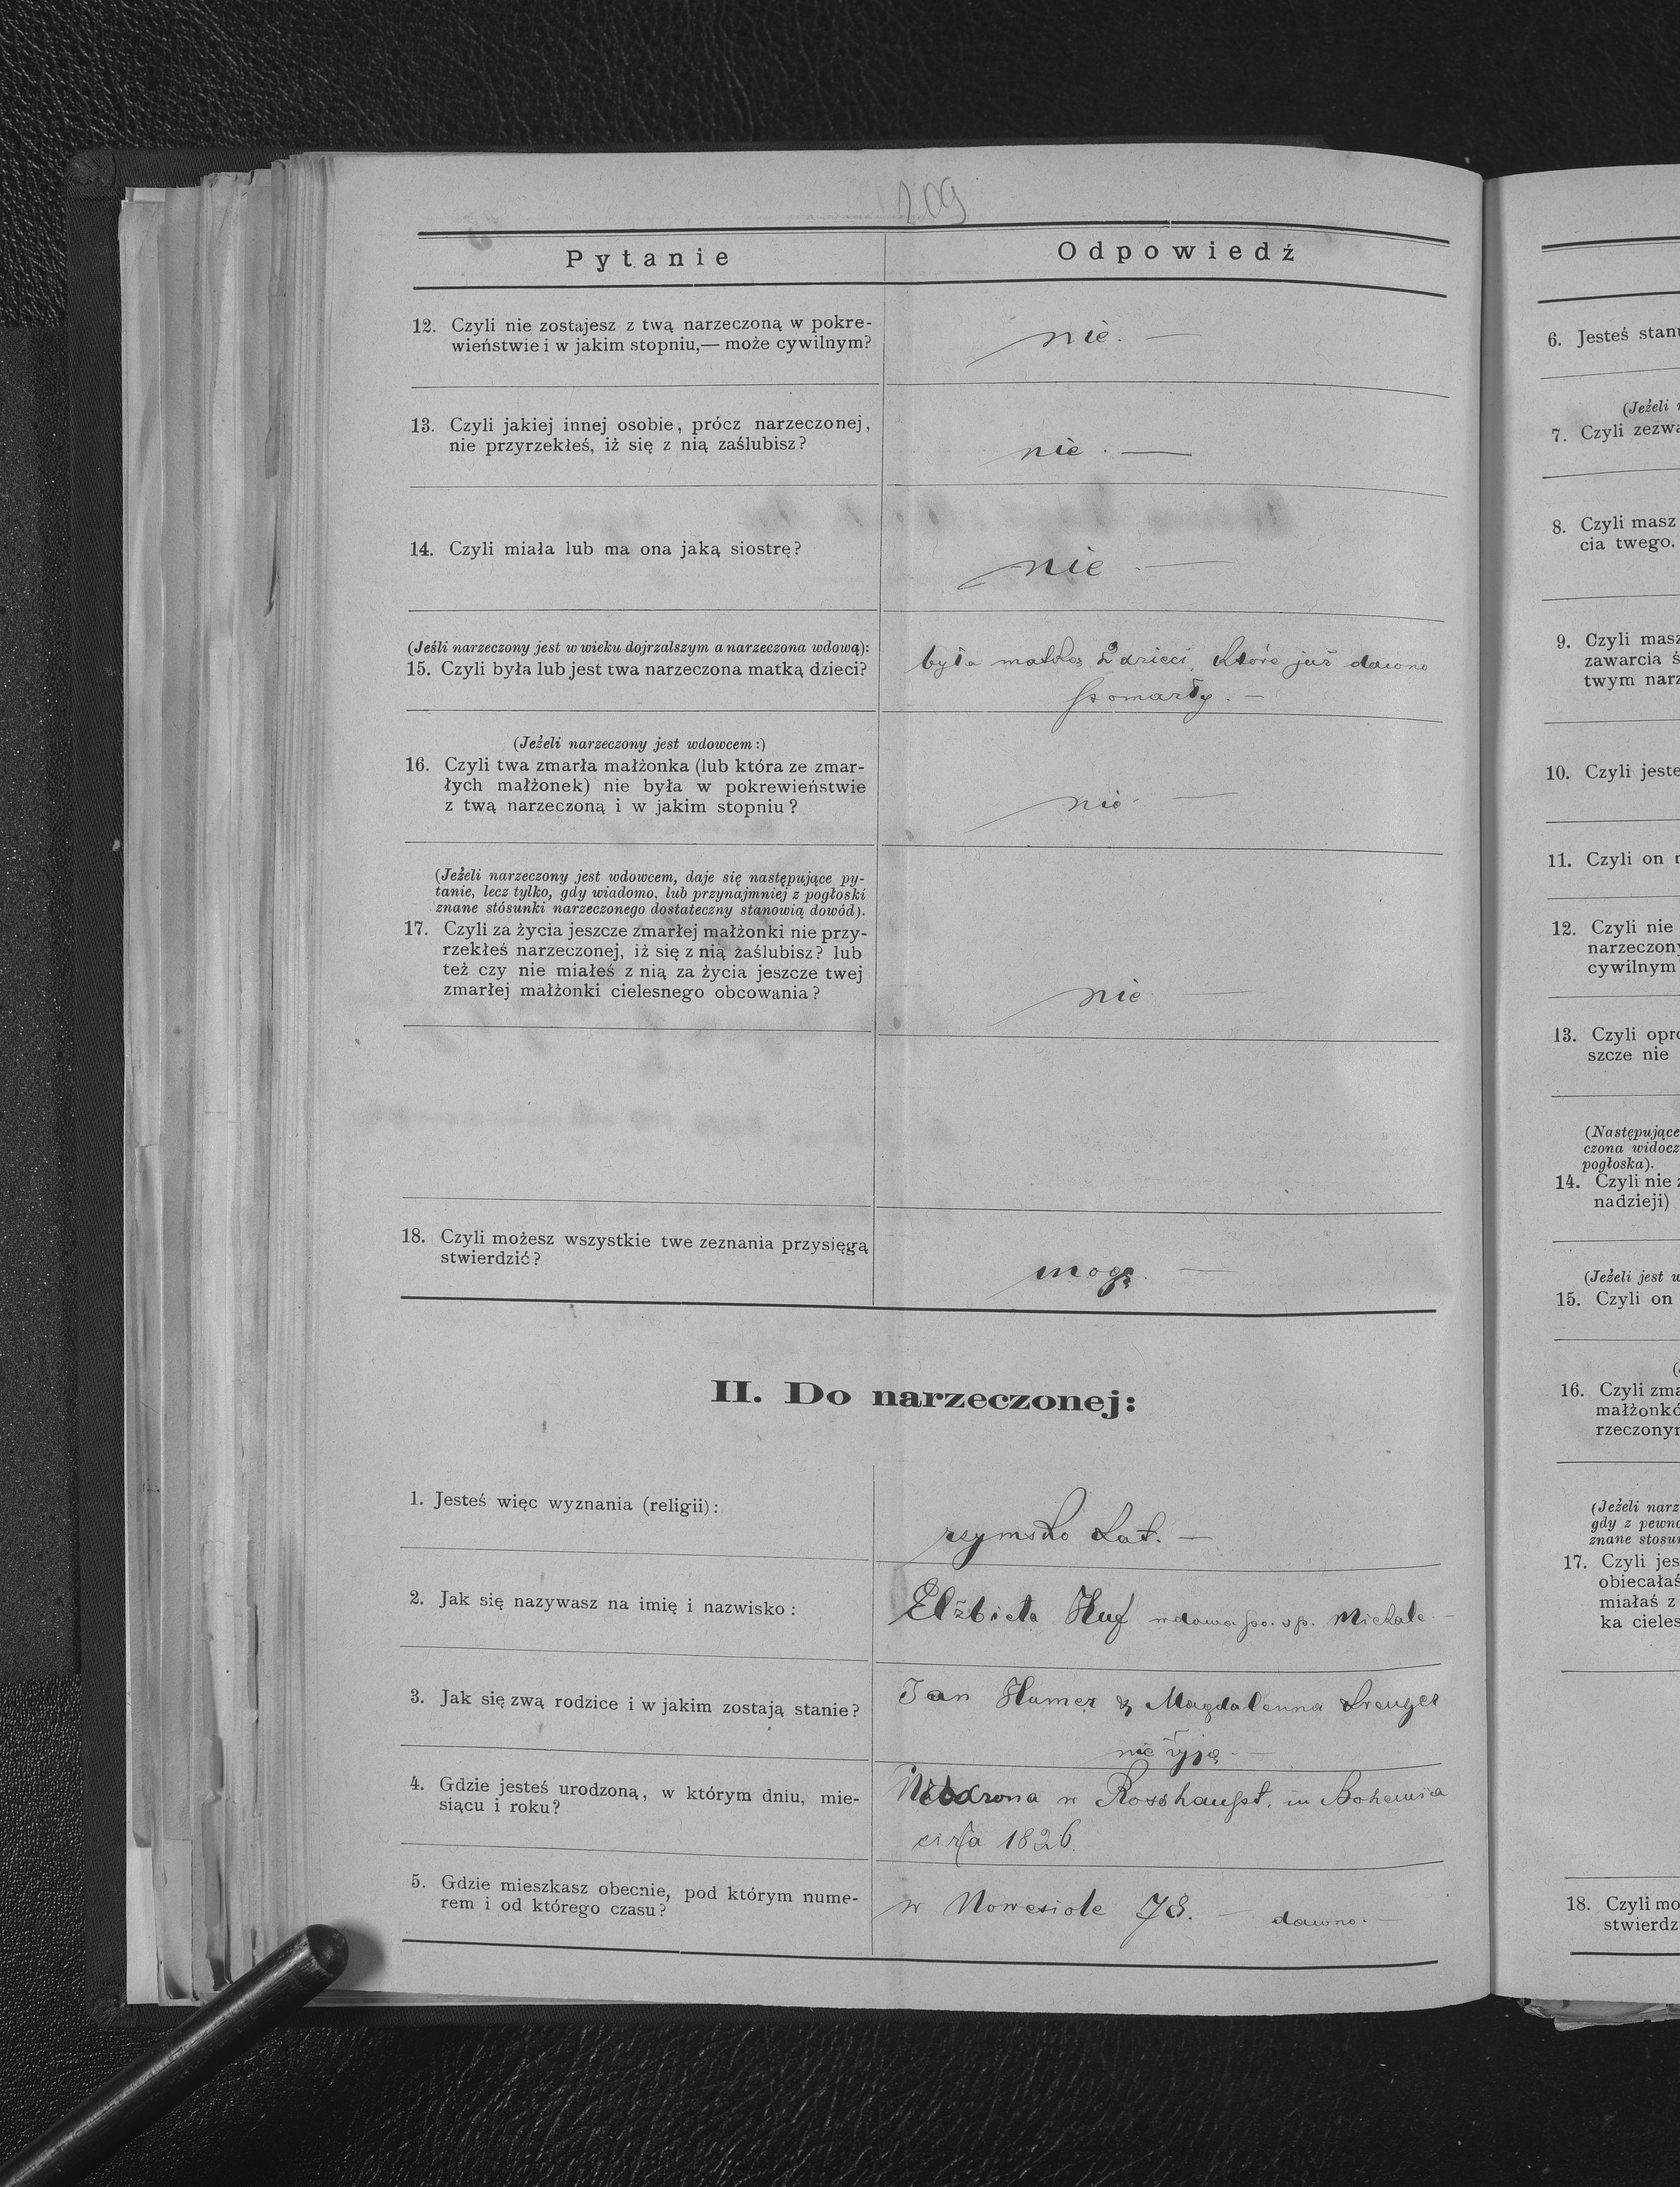 209
Pytanie
Odpowiedź
12. Czyli nie zostajesz z twą narzeczoną w pokre-
wieństwie i w jakim stopniu,— może cywilnym?
nie. —
13. Czyli jakiej innej osobie, prócz narzeczonej,
nie przyrzekłeś, iż się z nią zaślubisz?
nie. —
14. Czyli miała lub ma ona jaką siostrę?
nie —
(Jeśli narzeczony jest w wieku dojrzalszym a narzeczona wdową):
15. Czyli była lub jest twa narzeczona matką dzieci?
była matką 2 dzieci, które już dawno
pomarły. —
(Jeżeli narzeczony jest wdowcem:)
16. Czyli twa zmarła małżonka (lub która ze zmar-
łych małżonek) nie była w pokrewieństwie
z twą narzeczoną i w jakim stopniu?
nie —
(Jeżeli narzeczony jest wdowcem, daje się następujące py-
tanie, lecz tylko, gdy wiadomo, lub przynajmniej z pogłoski
znane stósunki narzeczonego dostateczny stanowią dowód).
17. Czyli za życia jeszcze zmarłej małżonki nie przy-
rzekłeś narzeczonej, iż się z nią żaślubisz? lub
też czy nie miałeś z nią za życia jeszcze twej
zmarłej małżonki cielesnego obcowania?
nie —
18. Czyli możesz wszystkie twe zeznania przysięgą
stwierdzić?
mogę. —
II. Do narzeczonej:
1. Jesteś więc wyznania (religii):
rzymsko kat. —
2. Jak się nazywasz na imię i nazwisko:
Elżbieta Huf wdowa po. sp. Michale —
3. Jak się zwą rodzice i w jakim zostają stanie?
Jan Hamer & Magdalenna
nie żyją. —
4. Gdzie jesteś urodzoną, w którym dniu, mie-
siącu i roku?
w Rosshaupt, in Bohemia
circa 1826.
5. Gdzie mieszkasz obecnie, pod którym nume-
rem i od którego czasu?
w Nowesiole 78. — dawno. —
6. Jesteś stanu
(Jeżeli
7. Czyli
8. Czyli masz
cia twego.
9. Czyli masz
zawarcia
twym
10. Czyli
11. Czyli on
12. Czyli nie
narzeczony
cywilnym
13. Czyli
szcze nie
(Następujące
czona
pogłoska).
14. Czyli nie
nadzieji)
(Jeżeli jest
15. Czyli on
16. Czyli
małżonkó
rzeczonym
(Jeżeli
gdy z
znane
17. Czyli
obiecałaś
miałaś z
ka
18. Czyli
stwierdz